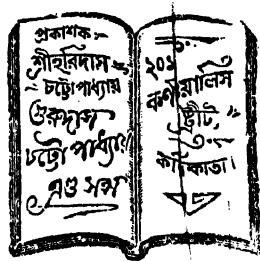 প্রকাশক:-
শ্রীহরিদাস
চট্টোপাধ্যায়
গুরুদাস
চট্টোপাধ্যায়
এণ্ড সন্স
২০১
কর্ণওয়ালিস
ষ্ট্রীট,
কলিকাতা।